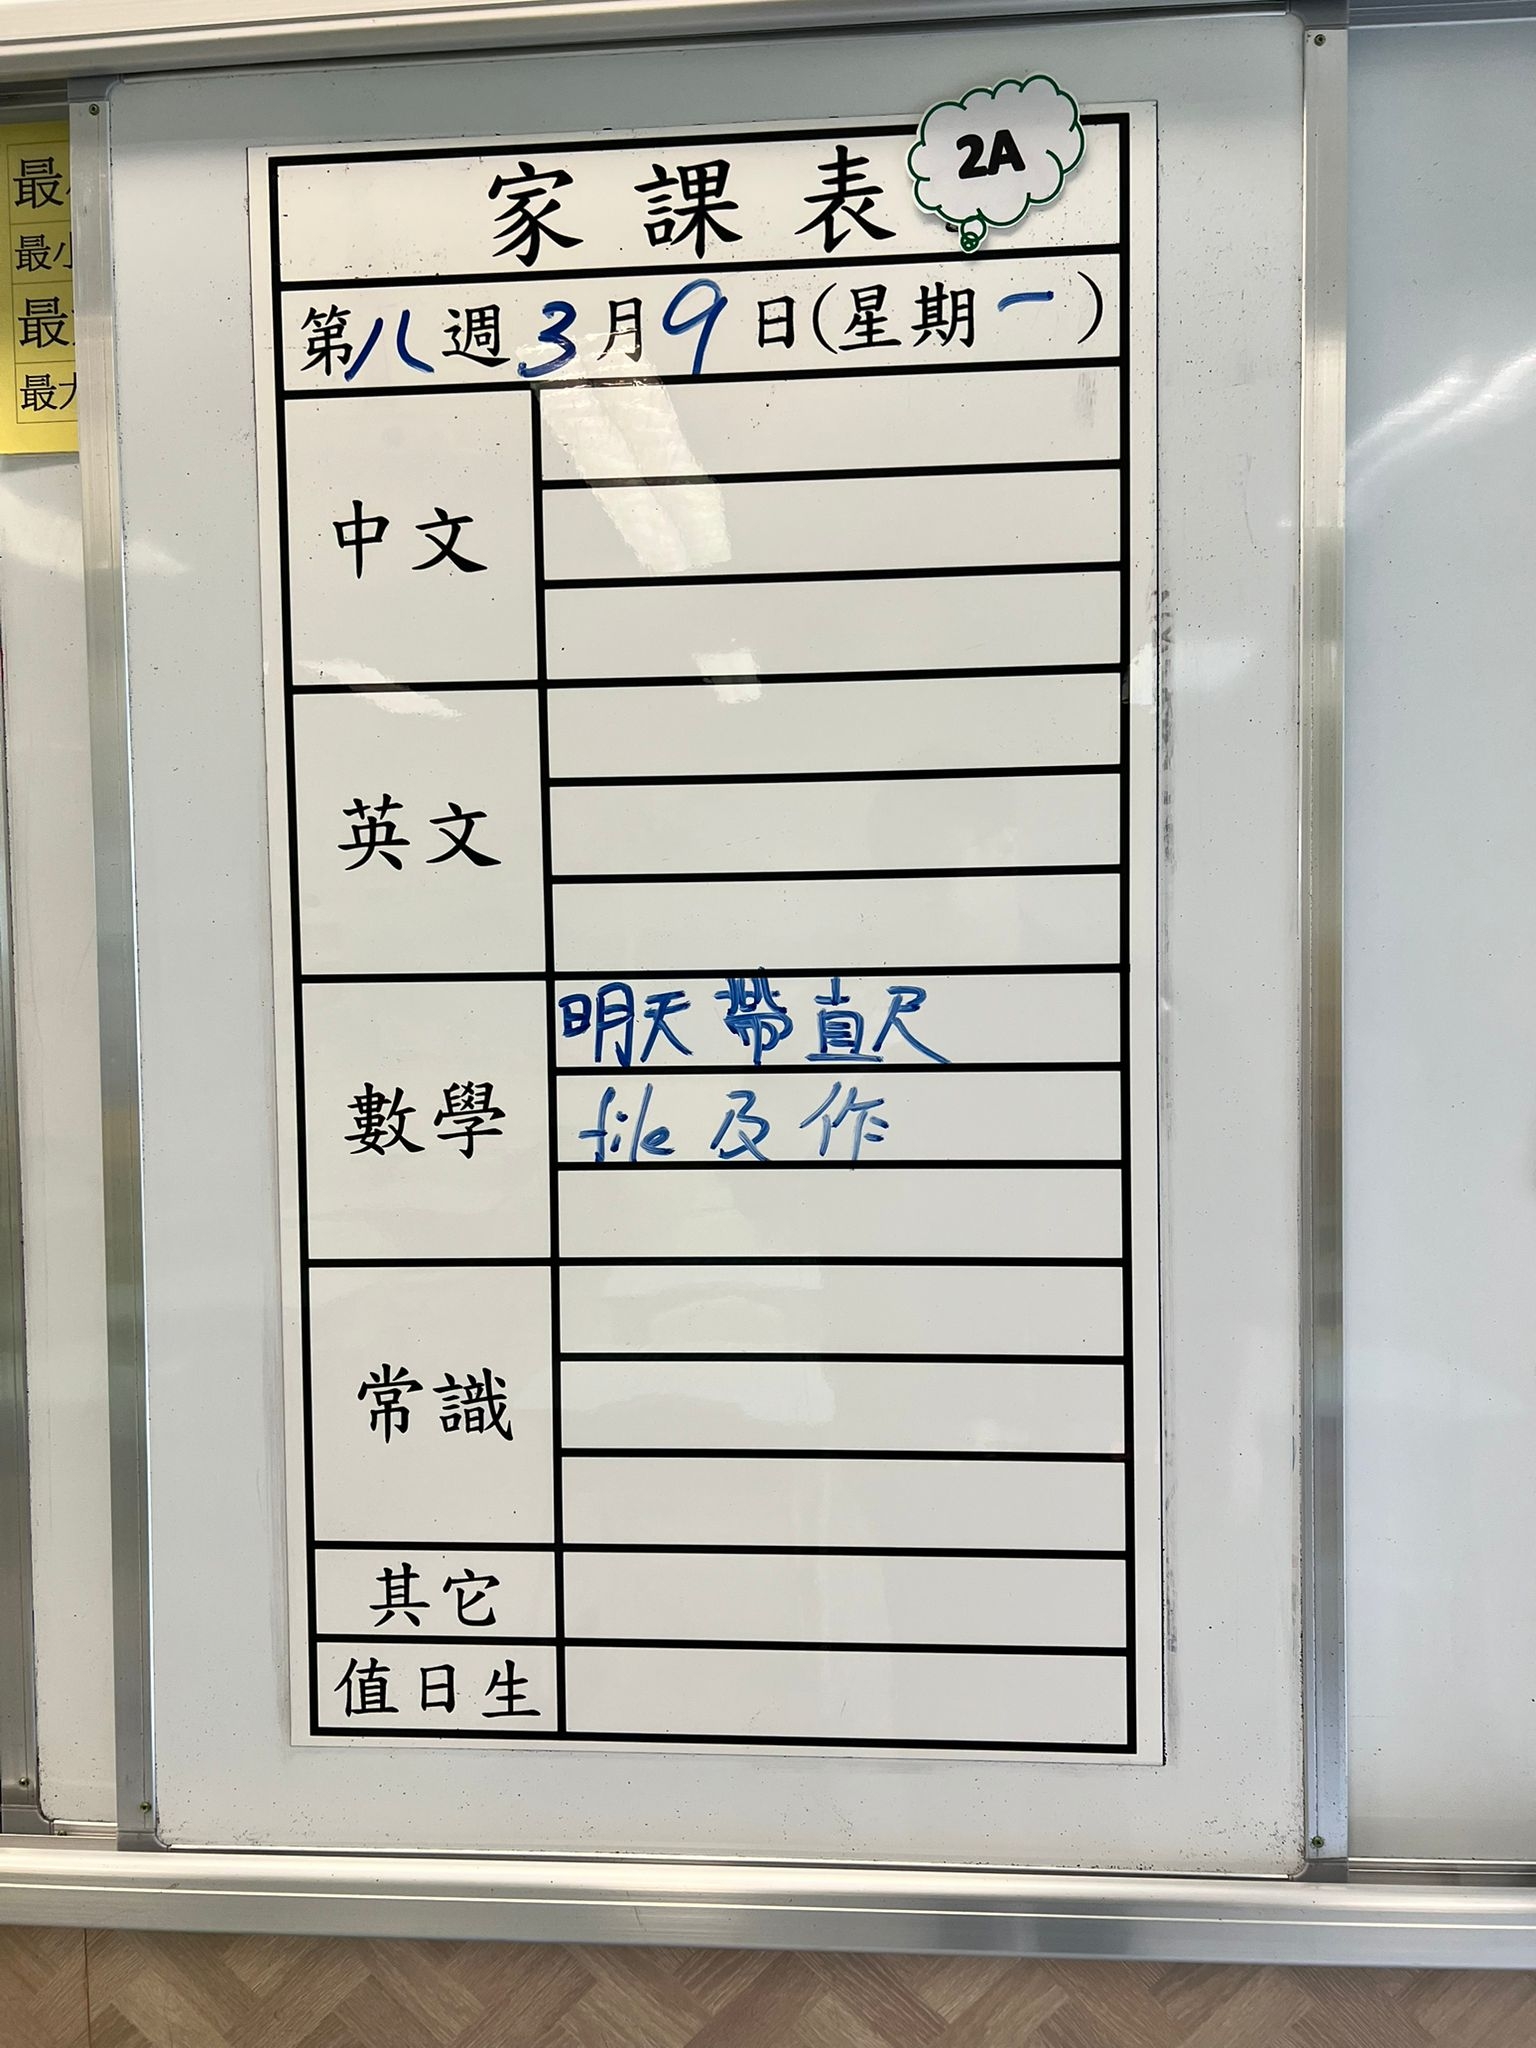 家課表
2A
第八週3月9日(星期一)
中文
英文
數學
明天帶直尺
file 及 作
常識
其它
值日生
最
最小
最
最大